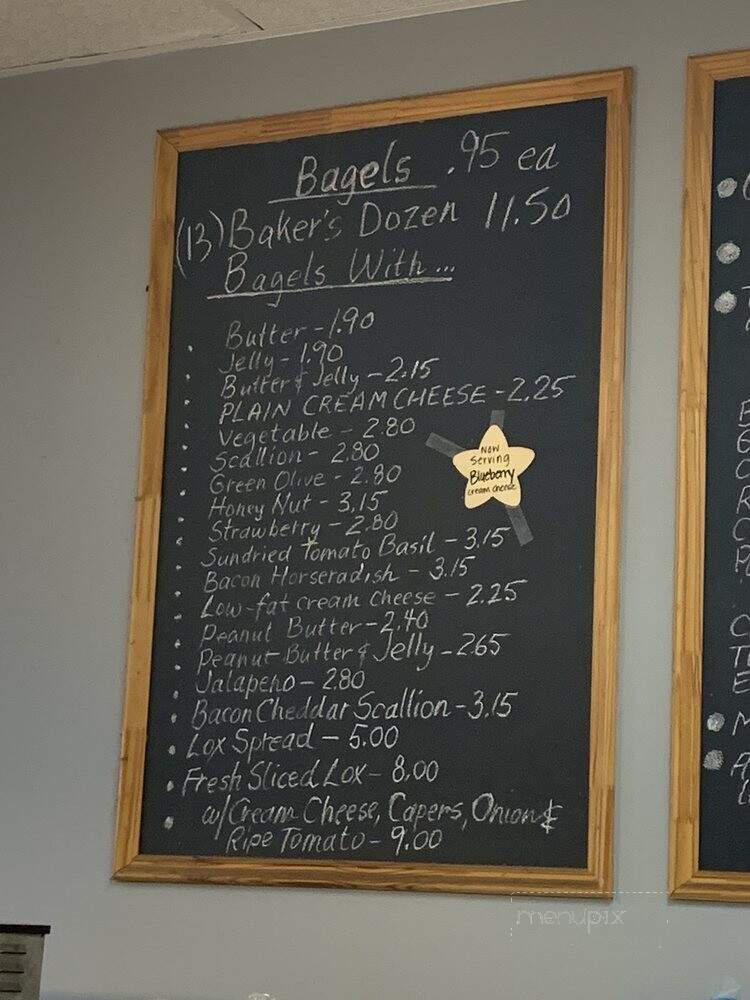 Bagels .95 ea
(13) Baker's Dozen 11.50
Bagels With...
Butter - 1.90
Jelly - 1.90
Butter & Jelly - 2.15
PLAIN CREAM CHEESE - 2.25
Vegetable - 2.80
Scallion - 2.80
Green Olive - 2.80
Honey Nut - 3.15
Strawberry - 2.80
Sundried Tomato Basil - 3.15
Bacon Horseradish - 3.15
Low-fat cream cheese - 2.25
Peanut Butter - 2.40
Peanut Butter & Jelly - 2.65
Jalapeno - 2.80
Bacon Cheddar Scallion - 3.15
Lox Spread - 5.00
Fresh Sliced Lox - 8.00
w/ Cream Cheese, Capers, Onion &
Ripe Tomato - 9.00
Now
Serving
Blueberry
cream cheese
menupix